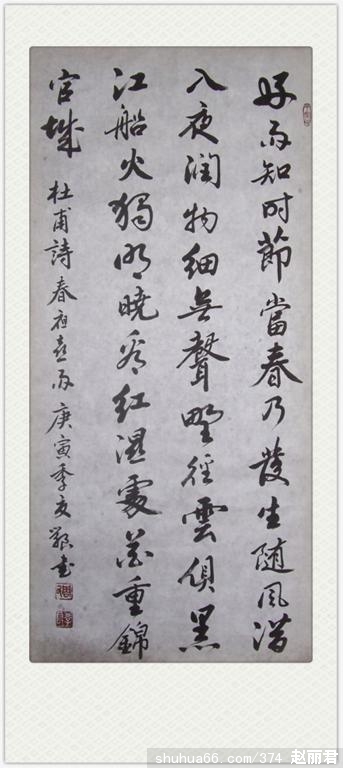 好雨知时節當春乃發生随風潜
入夜润物细無聲野徑雲俱黑
江船火獨明曉看红濕處花重錦
官城
杜甫詩春夜喜雨 庚寅季夏書
shuhua66.com/374 赵丽君